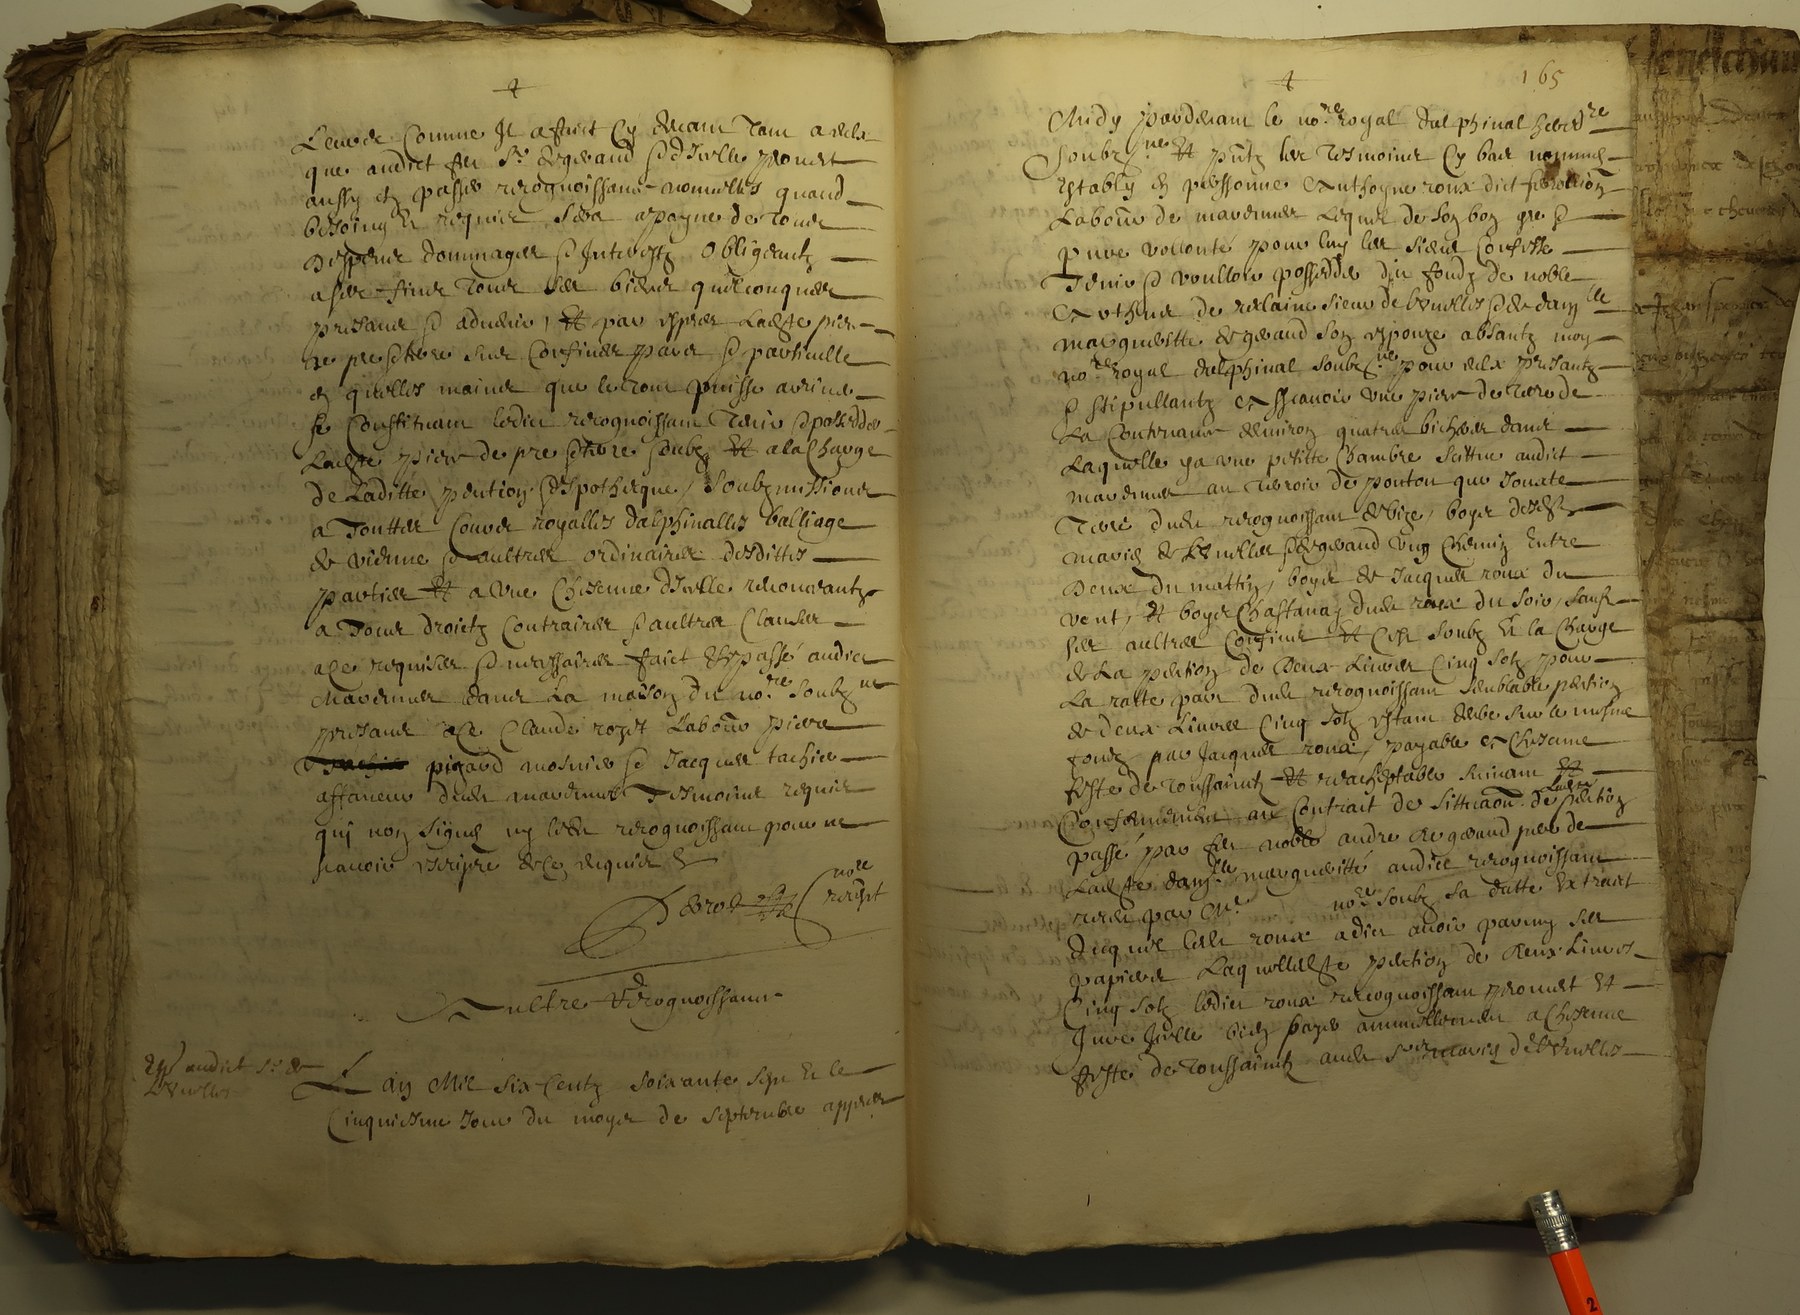 Leurde Comme Il a faict Cy devant Tant a eulx
que audict feu Sr Regnaud & d'Icelle promet
aussy et passer recognoissance nouvelles quand
besoing Et requis sera apayne de tous
despens dommages & Interestz Obligeantz
a ses fins tous ses biens quelconques
presans & advenir, Et par expres Ladte piece
de pre & terre sus Confinés
en quelles mains que le tout puisse arriver
se Constituant ledict recognoissant Tenir & posseder
Ladte piece de pre & terre soubz Et a la Charge
de Laditte pention & ypothecque, Soubzmissions
a Touttes Cours royalles dalphinalles balliage
de vienne & aultres ordinaires desdittes
parties Et a une Chescune d'Icelle renonceantz
a Tous droictz Contraires & aultres Clauses
a Ce requises & necessaires faict Et passé audict
Mardennes dans La maison du nore Soubzne
presans a Ce Claude roget Labour pierre
pigard mosnier & Jacques tachier
affaneur dudt mardennes Tesmoins requis
quj non signé ny ledt recognoissant pour ne
scavoir escripre de Ce requis &
nore
recept
Aultre Recognoissance
audict Sr de
L'an Mil six Centz soixante sept Et le
Cinquiesme Jour du moys de septembre appres
165
Midy pardevant le nore royal dalphinal
Soubzne Et pntz les tesmoins Cy bas nommés
Estably en personne Anthoyne roux dict
Labour de mardennes Lequel de son bon gre &
pure vollonté pour luy les siens Confesse
Tenir & voulloir posseder du fondz de noble
Arthus de relaine sieur de & de damlle
margueritte Regnaud son espouze absantz moy
nore royal dalphinal soubzne pour eulx presantz
& stipullantz A scavoir une piece de terre de
La Contenance denviron quatre bicherées dans
Laquelle ya une petitte Chambre scittue audict
mardennes au terroir de ponton que Jouxte
Terre dudt recognoissant de bize, boys desdts
mariés de & Regnaud ung Chemin Entre
Deux du mattin, boys de Jacques roux du
vent, Et boys Chastanay dudt roux du soir, sauf
ses aultres Confins Et Ce soubz Et la Charge
de La pention de Deux Livres Cinq solz pour
La ratte part dudt recognoissant semblable pention
de deux Livres Cinq solz estant deube sur le mesme
fondz par Jacques roux, payable A Chescune
feste de toussaintz Et reacheptable suivant
Conformement au Contrait de de Ladte pention
passé par feu noble andre Regnaud pere de
Ladte damlle margueritté audict recognoissant
receu par Me nore soubz sa datte Extraict
duquel ledt roux a dict avoir parmy ses
papiers Laquelle dte pention de deux Livres
Cinq solz ledict roux recognoissant promet Et
Jure Icelle bien payer annuellement a Chescune
feste de toussaintz